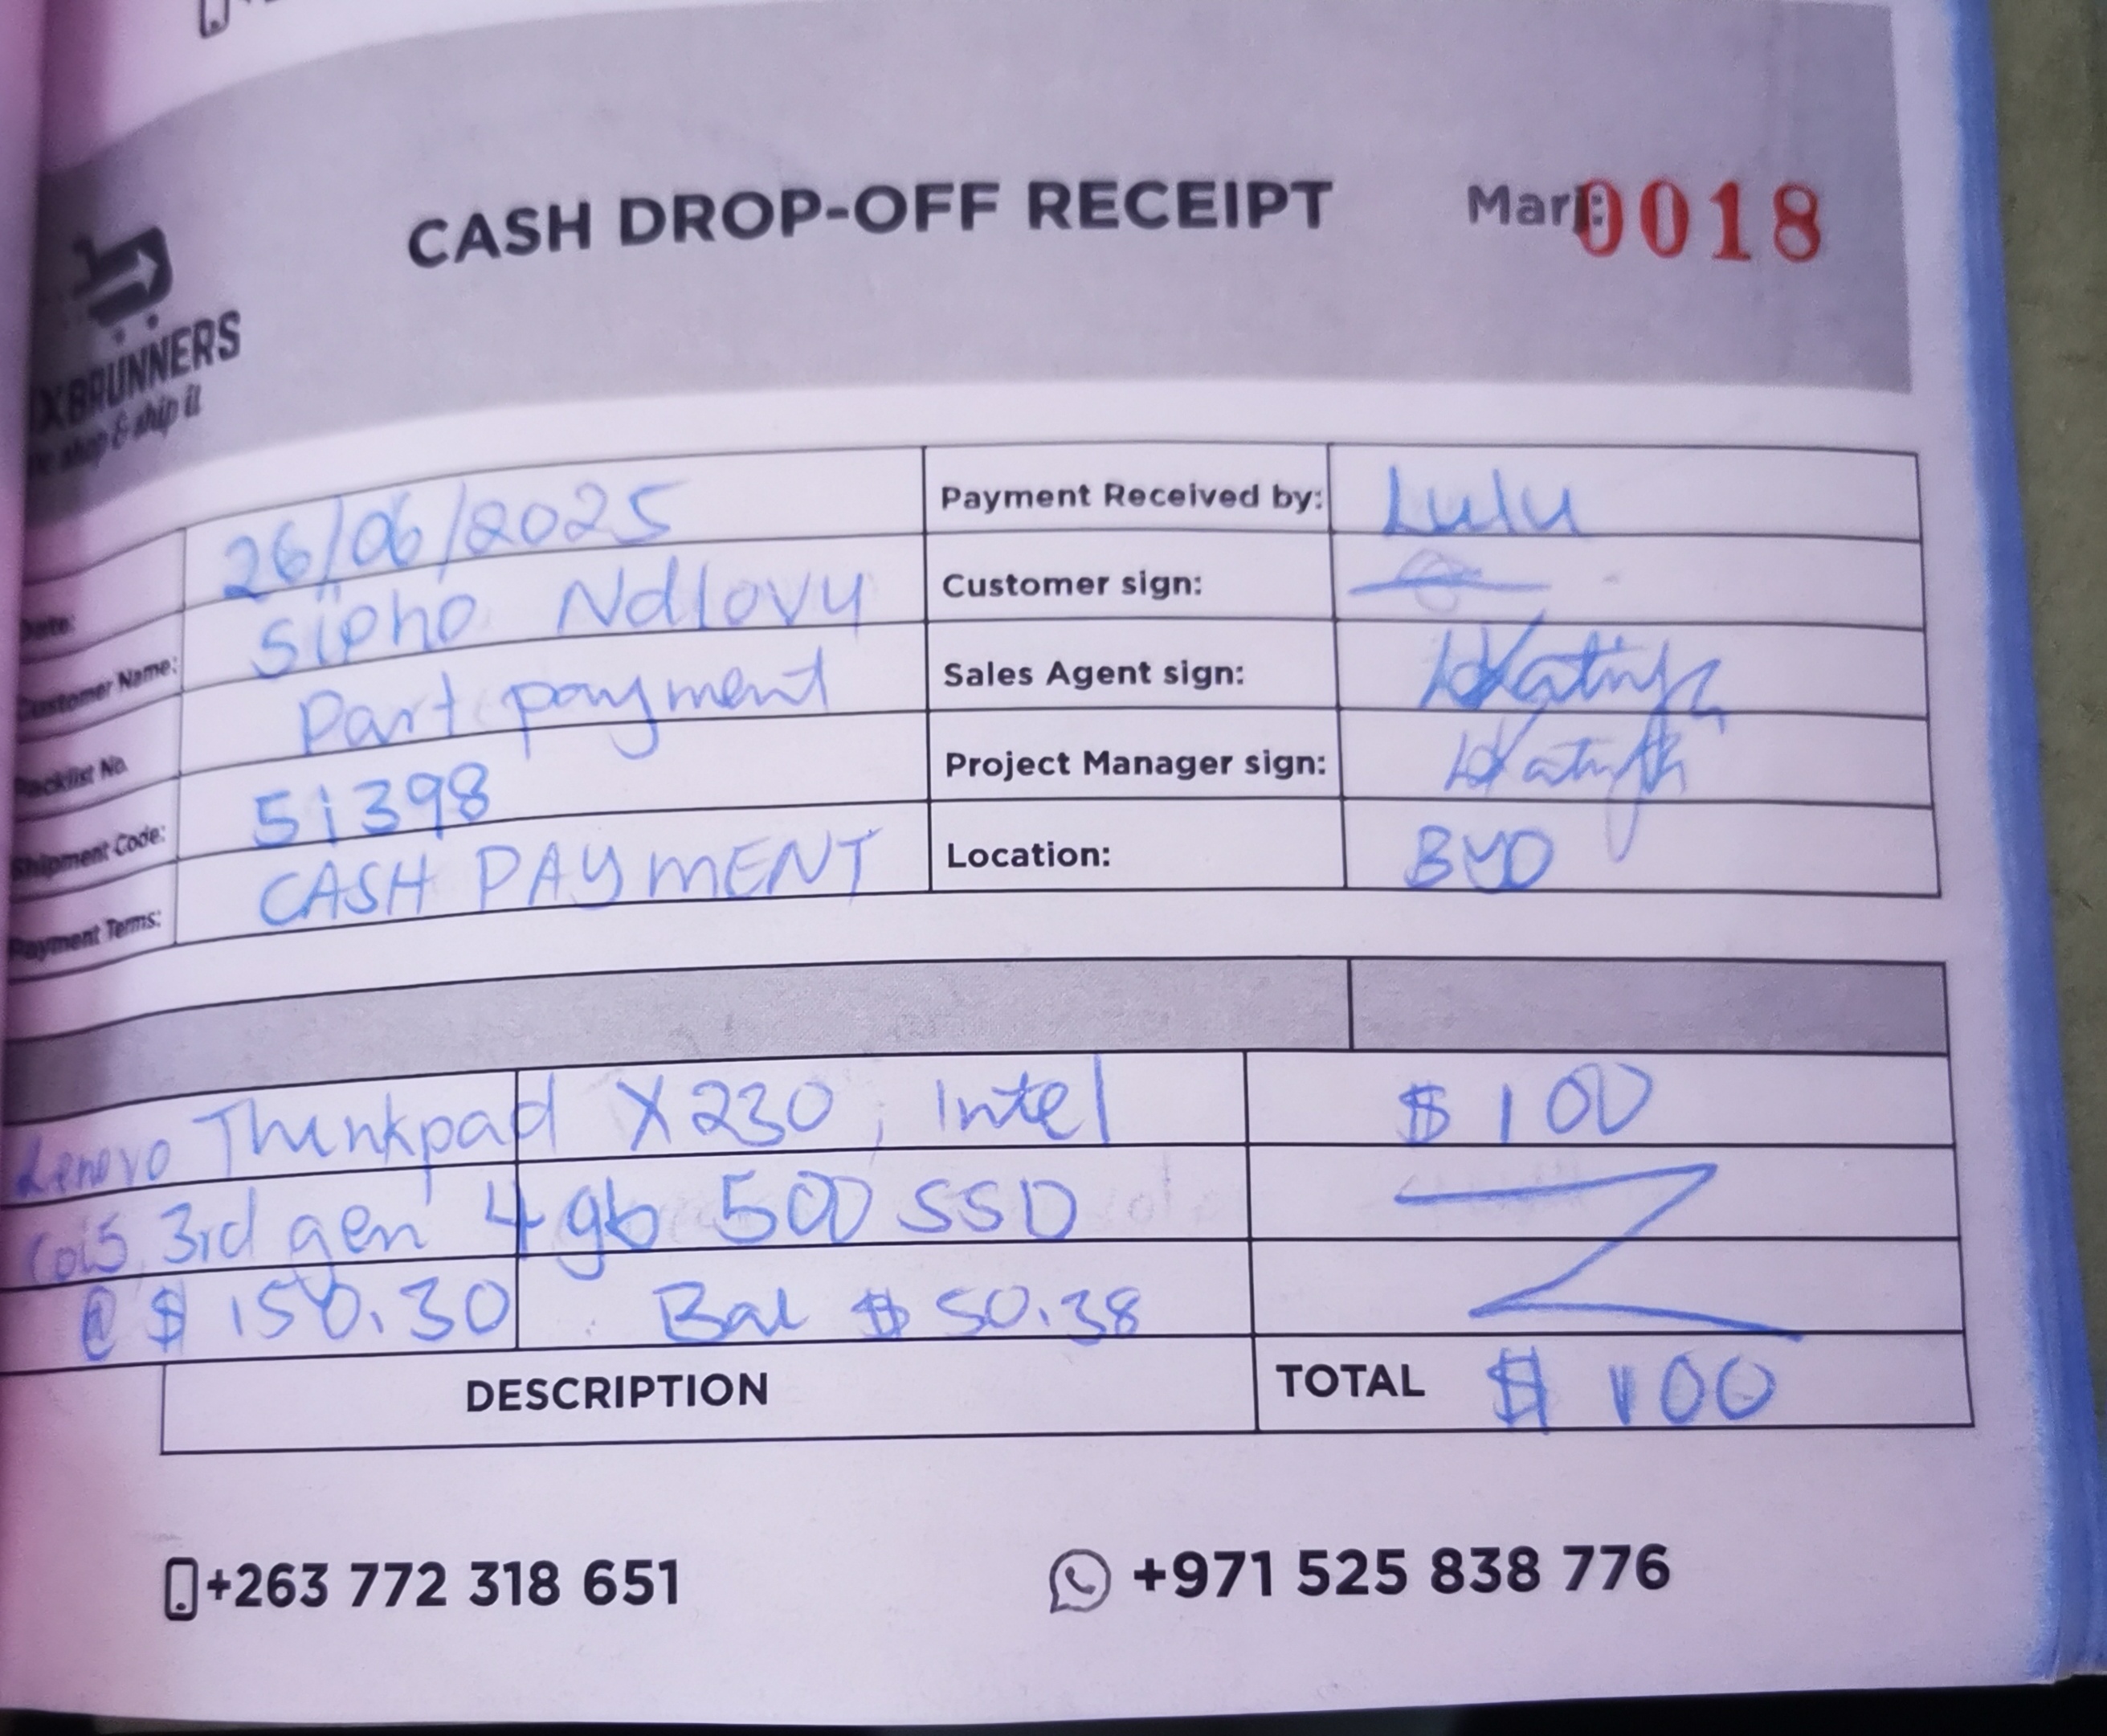 CASH DROP-OFF RECEIPT
0018
XBRUNNERS
shop & ship it
Date: 26/06/2025
Payment Received by: Lulu
Customer Name: Sipho Ndlovu
Customer sign:
Packlist No. Part payment
Sales Agent sign:
Shipment Code: 51398
Project Manager sign:
Payment Terms: CASH PAYMENT
Location: BYO
Lenovo Thinkpad X230, Intel $100
Coi5 3rd gen 4gb 500 SSD
@ $150.30 Bal $50.38
DESCRIPTION TOTAL $100
+263 772 318 651
+971 525 838 776